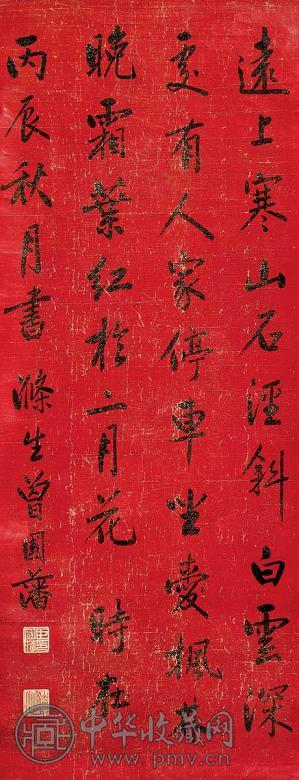 遠上寒山石徑斜白雲深
處有人家停車坐愛楓
晚霜葉紅於二月花時在
丙辰秋月書滌生曾國藩
中华收藏网
www.pmv.cn